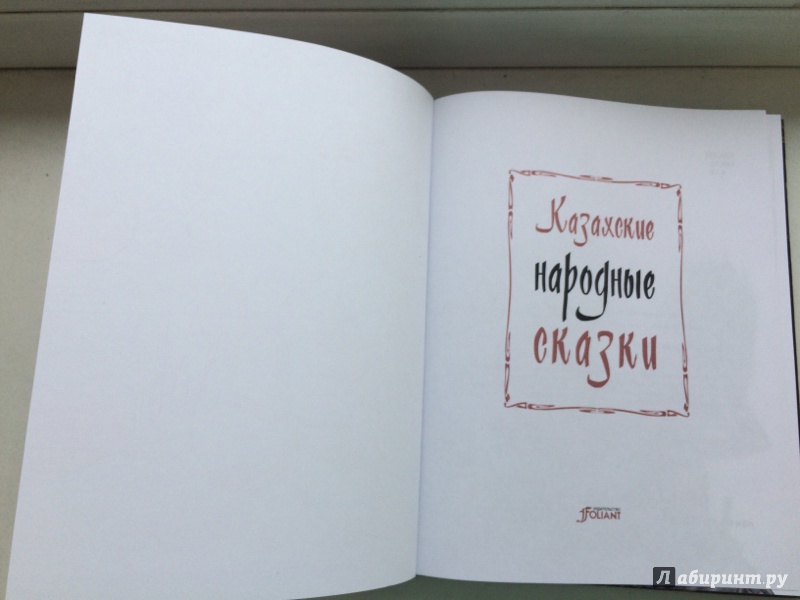 Казахские
народные
сказки
издательство
FOLIANT
Лабиринт.ру